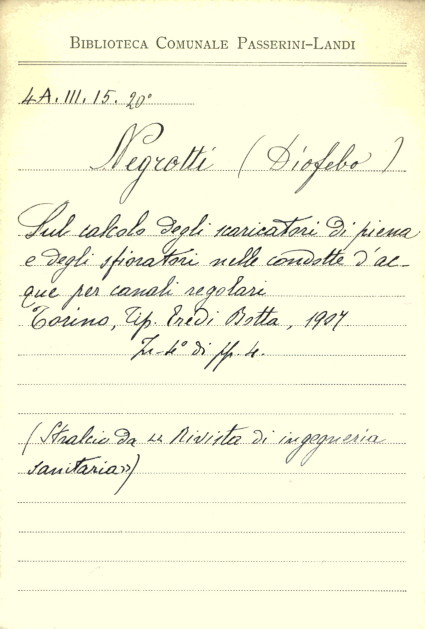 BIBLIOTECA COMUNALE PASSERINI-LANDI
4A.III.15.20°
Negrotti (Diofebo)
Sul calcolo degli scaricatori di piena
e degli sfioratori nelle condotte d'ac-
que per canali regolari
Torino, Tip. Eredi Botta, 1907
In-4° di pp. 4.
(Stralcio da « Rivista di ingegneria
sanitaria»)